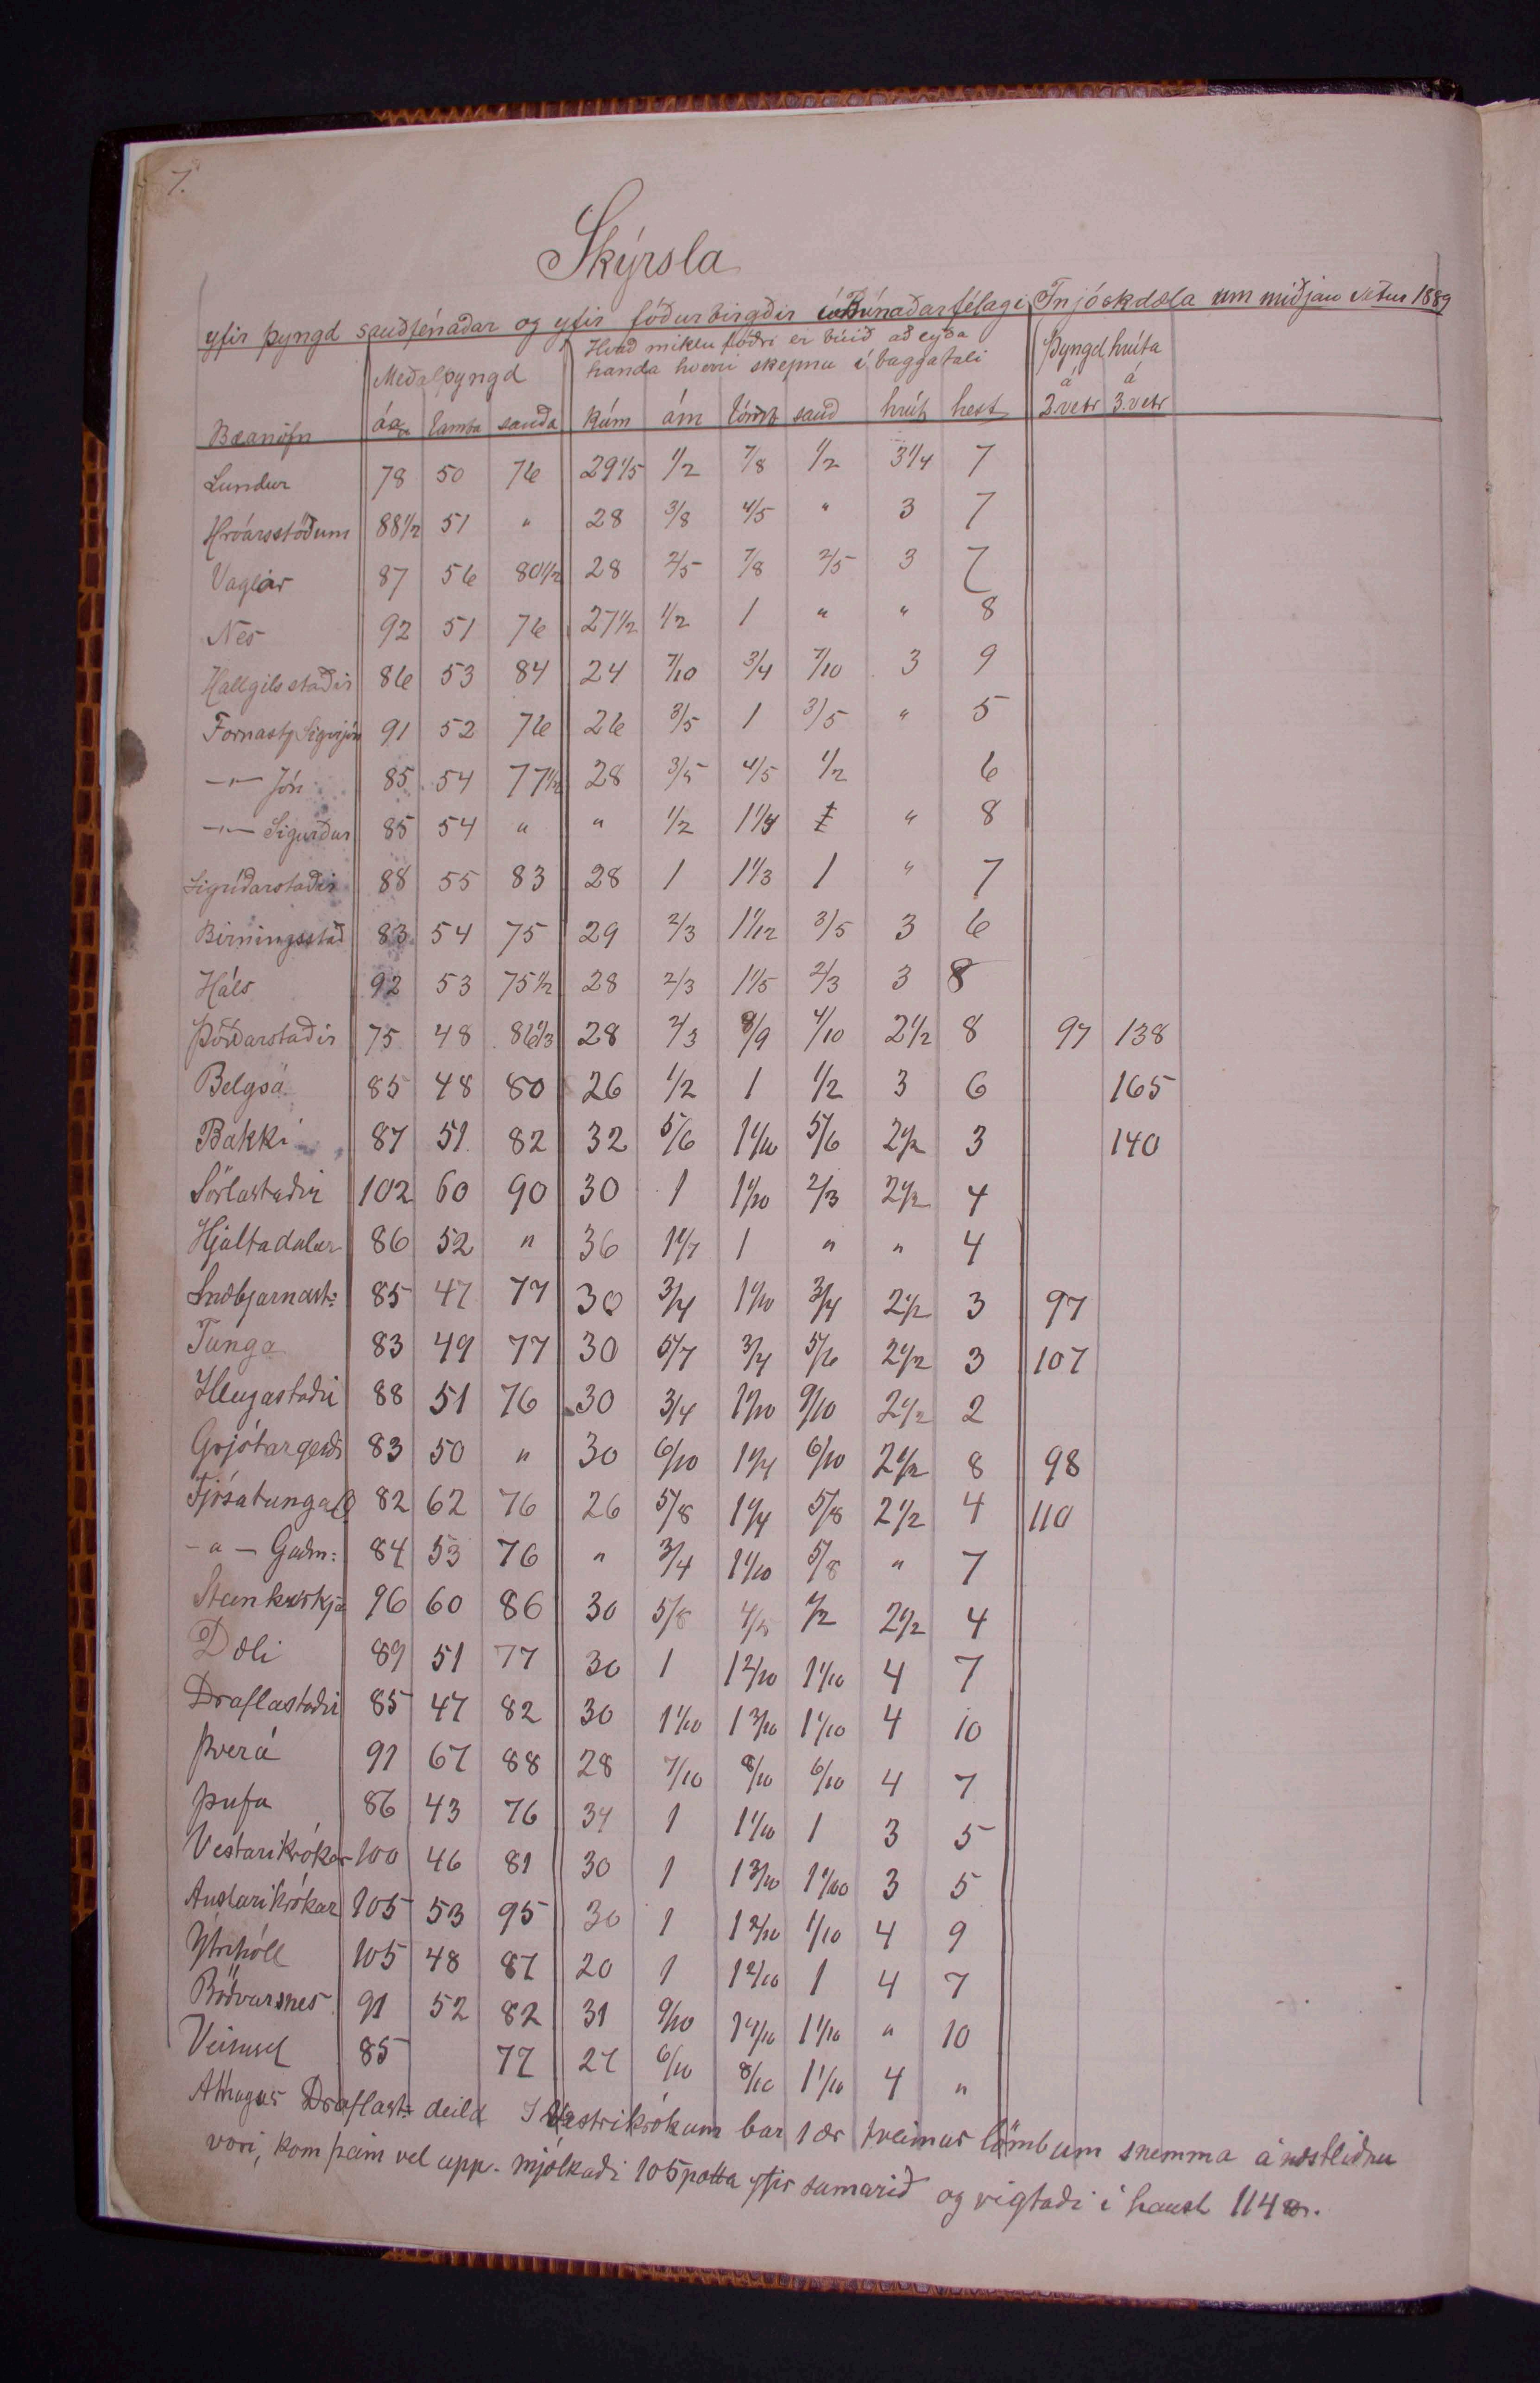 7.
Skýrsla
yfir þyngd sauðfénaðar og yfir fóðurbirgðir í Búnaðarfélagi Fnjóskdæla um miðjan vetur 1889
Meðalþyngd | Hvað miklu fóðri er búið að eyða handa hverri skepnu í baggatali | Þyngd hrúta
Bæanöfn | áa | lamba | sauða | kúm | ám | lömb | sauð | hrút | hest | á 2.vetr | á 3.vetr
Lundur 78 50 76 29 1/5 1/2 7/8 1/2 3 1/4 7
Hróarsstöðum 88 1/2 51 " 28 3/8 4/5 " 3 7
Vaglar 87 56 80 1/2 28 2/5 7/8 2/5 3 7
Nes 92 51 76 27 1/2 1/2 1 " " 8
Hallgilsstaðir 86 53 84 24 7/10 3/4 7/10 3 9
Fornast Sigurjón 91 52 76 26 3/5 1 3/5 " 5
—"— Jón 85 54 77 1/2 28 3/5 4/5 1/2 6
—"— Sigurður 85 54 " " 1/2 1 1/4 " 8
Sigríðarstaðir 88 55 83 28 1 1 1/3 1 " 7
Birningsstað 83 54 75 29 2/3 1 1/12 3/5 3 6
Háls 92 53 75 1/2 28 2/3 1 1/5 2/3 3 8
Þórðarstaðir 75 48 86 1/3 28 2/3 8/9 4/10 2 1/2 8 97 138
Belgsá 85 48 80 26 1/2 1 1/2 3 6 165
Bakki 87 51 82 32 5/6 1 1/10 5/6 2 1/2 3 140
Sörlastaðir 102 60 90 30 1 1 1/10 2/3 2 1/2 4
Hjaltadalur 86 52 " 36 1 1/7 1 " " 4
Snæbjarnast: 85 47 77 30 3/4 1 1/10 3/4 2 1/2 3 97
Tunga 83 49 77 30 5/7 3/4 5/6 2 1/2 3 107
Illugastaðir 88 51 76 30 3/4 1 1/10 9/10 2 1/2 2
Grjótargerði 83 50 " 30 6/10 1 1/4 6/10 2 1/2 8 98
Fjósatunga 82 62 76 26 5/8 1 1/4 5/8 2 1/2 4 110
- " - Guðm: 84 53 76 " 3/4 1 1/10 5/8 " 7
Steinkirkja 96 60 86 30 5/8 4/5 1/2 2 1/2 4
Dæli 89 51 77 30 1 1 2/10 1 1/10 4 7
Draflastaðir 85 47 82 30 1 1/10 1 3/10 1 1/10 4 10
Þverá 91 67 88 28 7/10 8/10 6/10 4 7
Þúfa 86 43 76 34 1 1 1/10 1 3 5
Vestarikrókar 100 46 81 30 1 1 3/10 1 1/10 3 5
Austarikrókar 105 53 95 30 1 1 2/10 1/10 4 9
Ytrihóll 105 48 87 20 1 1 2/10 1 4 7
Böðvarsnes 91 52 82 31 9/10 1 4/10 1 1/10 " 10
Veisusel 85 77 27 6/10 8/10 1 1/10 4 "
Athugas Draflast: deild Í Vestrikrókum bar 1 ær tveimur lömbum snemma á næstliðnu
vori, kom þeim vel upp. mjólkaði 105 potta yfir sumarið og vigtaði í haust 114